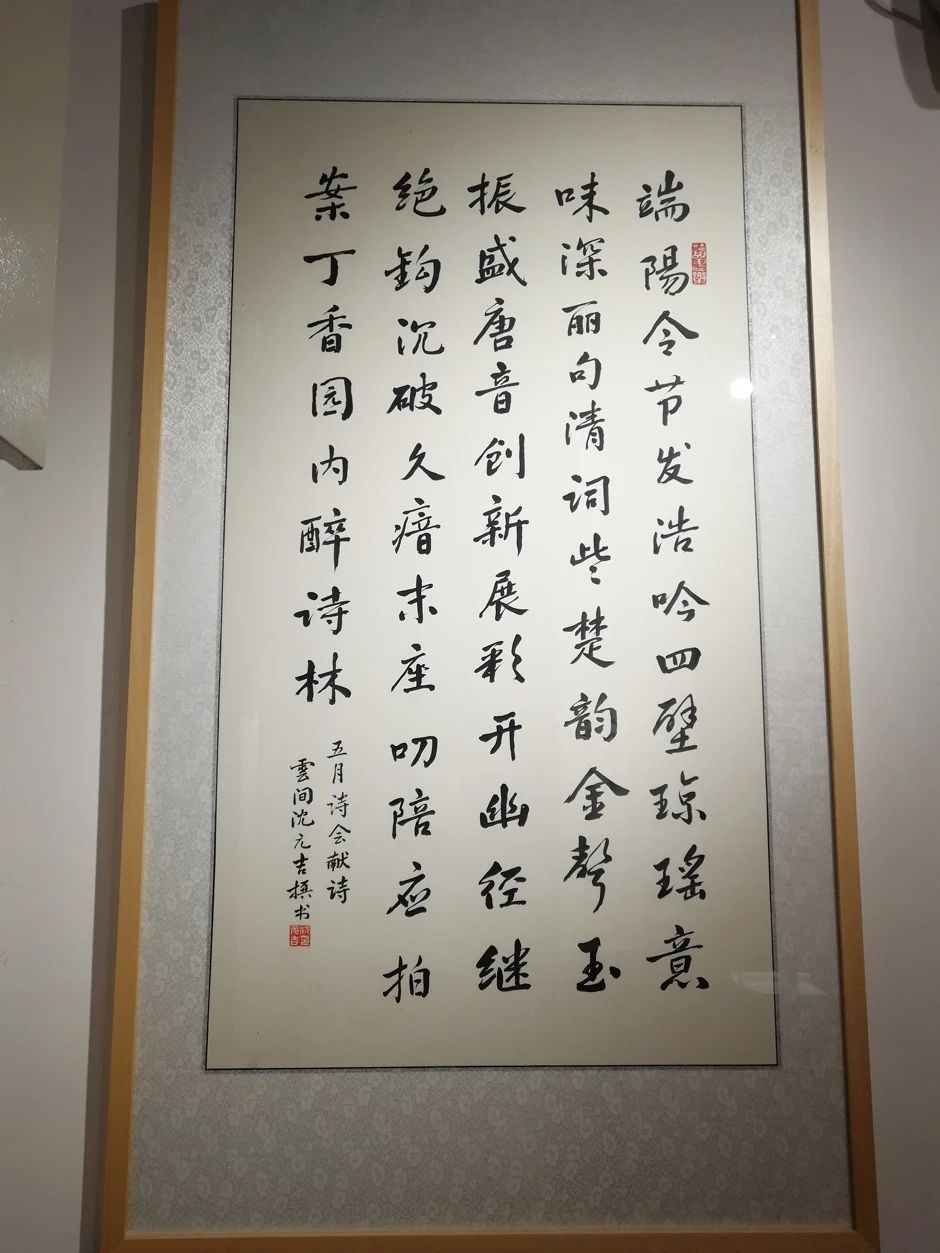 端陽令节发浩吟四壁琼瑶意
味深丽句清词些楚韵金声玉
振盛唐音创新展彩开幽径继
绝钩沉破久瘖末座叨陪应拍
案丁香园内醉诗林
五月诗会献诗
雲间沈元吉撰书